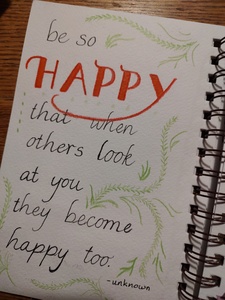 be so
HAPPY
that when
others look
at you
they become
happy too.
-unknown